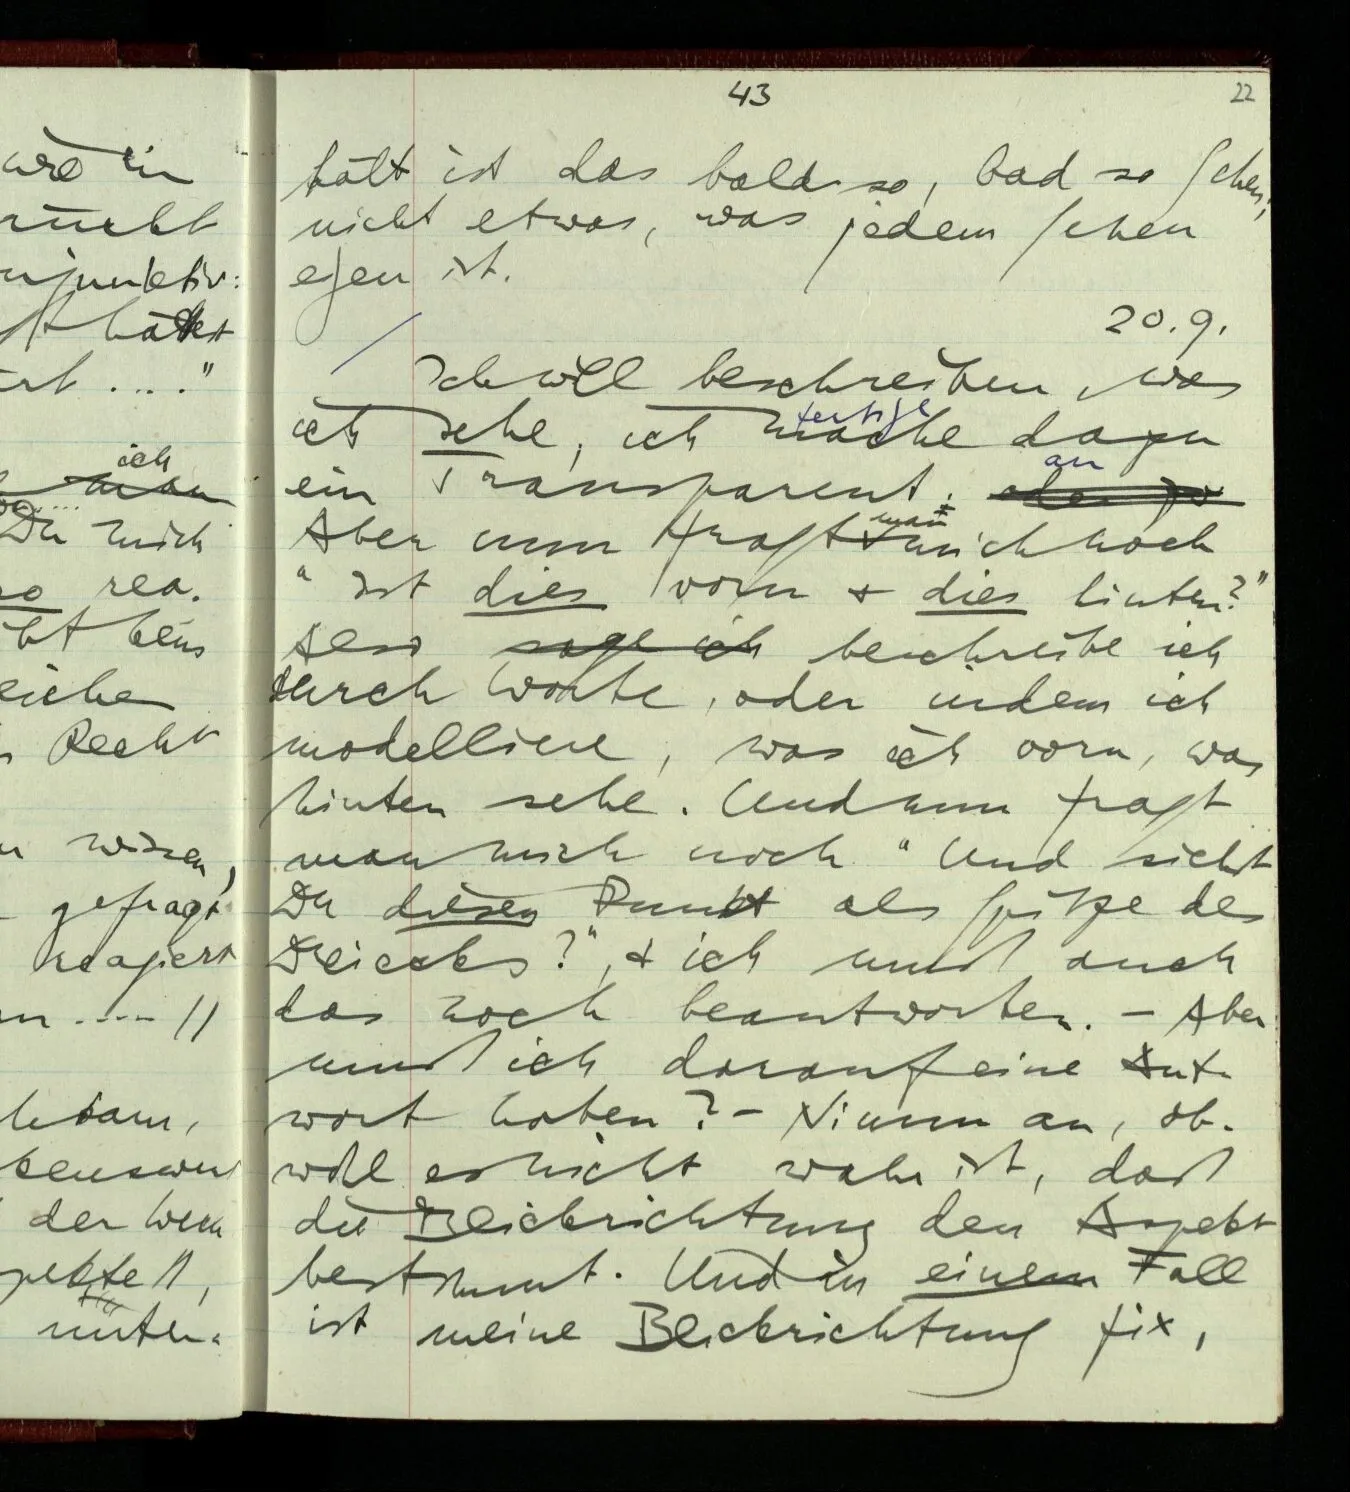 43
22
hält ist das bald so, bad so Sehen,
nicht etwas, was jedem Sehen
eigen ist.
20.9.
Ich will beschreiben, was
ich sehe; ich mache fertige dazu
ein Transparent. an oder so
Aber nun fragt man mich noch
"Ist dies vorn & dies hinten?"
Also sage ich beschreibe ich
durch Worte, oder indem ich
modelliere, was ich vorn, was
hinten sehe. Und nun fragt
man mich noch "Und siehst
Du diesen Punkt als Spitze des
Dreiecks?", & ich muß auch
das noch beantworten. – Aber
muß ich darauf eine Ant-
wort haben? – Nimm an, ob-
wohl es nicht wahr ist, daß
die Blickrichtung den Aspekt
bestimmt. Und in einem Fall
ist meine Blickrichtung fix,
ich
Du mich
so rea.
Recht
wissen,
gefragt
reagiert
der Wem